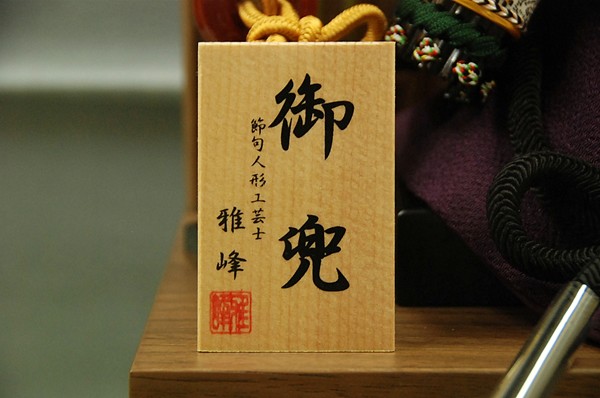 御兜
節句人形工芸士
雅峰